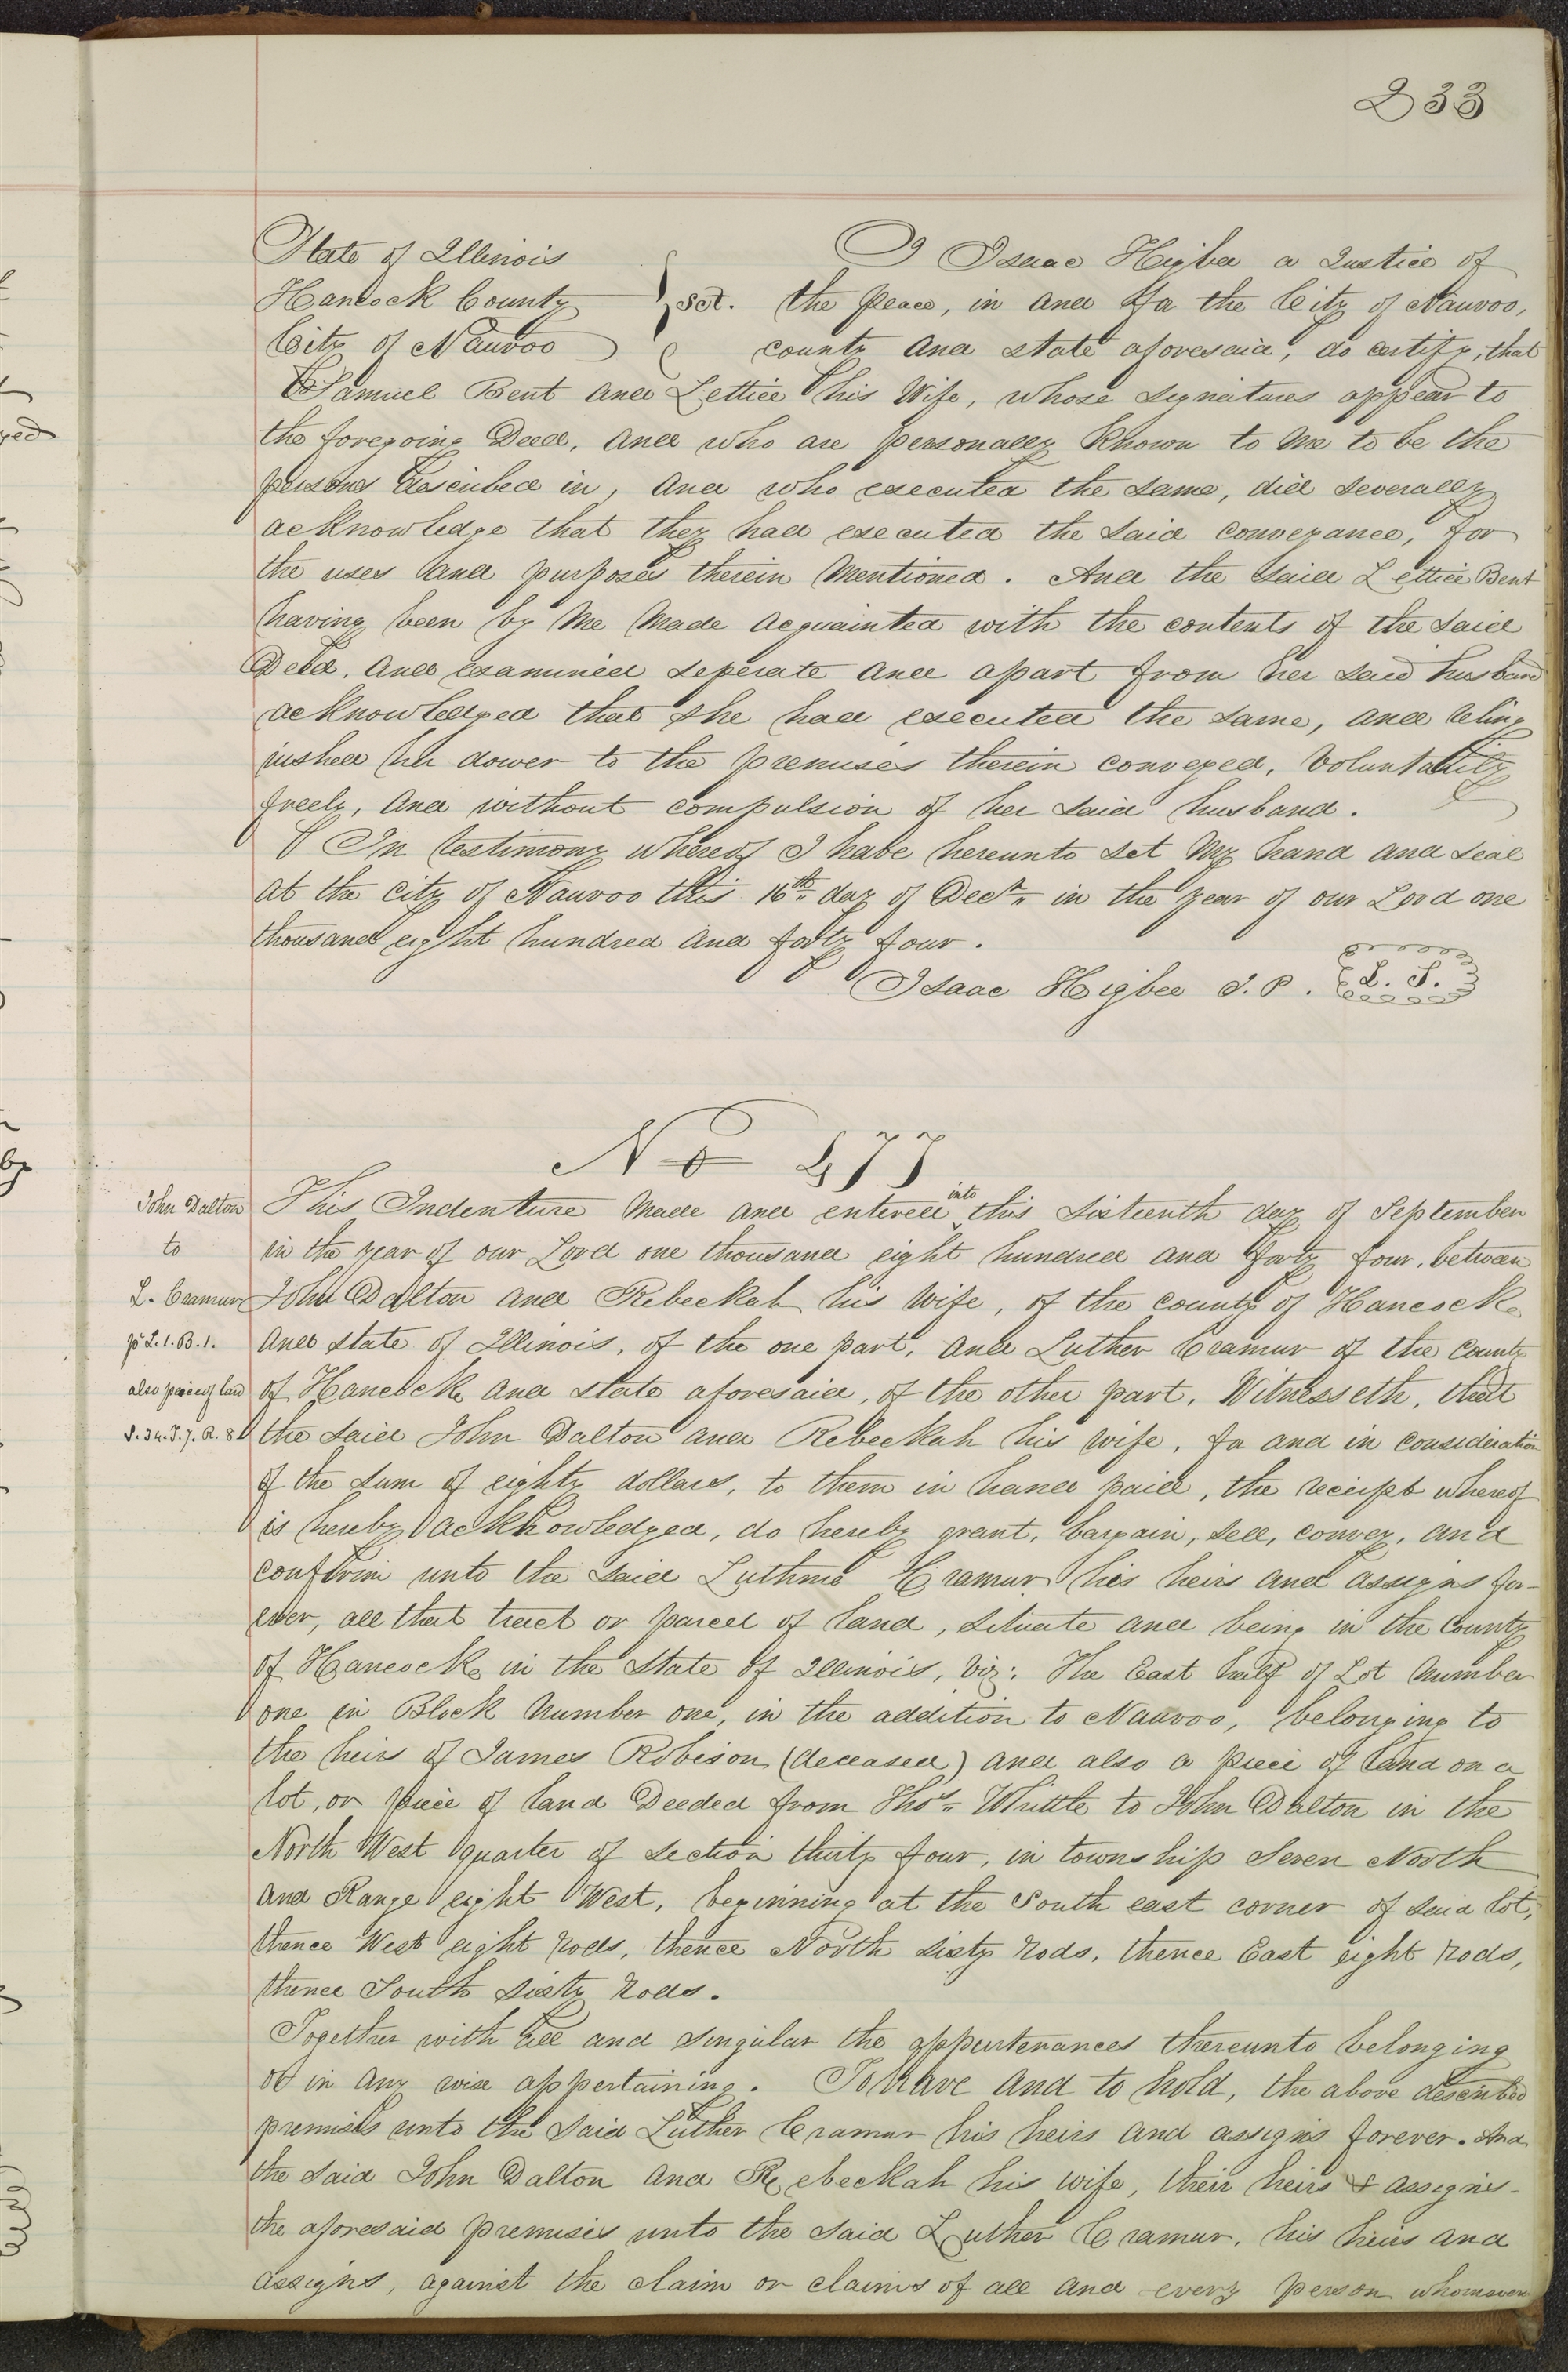 233
State of Illinois
Hancock County
City of Nauvoo
sct.
I Isaac Higbee a Justice of
the peace, in and for the City of Nauvoo,
county and state aforesaid, do certify, that
Samuel Bent and Lettice his Wife, whose signatures appear to
the foregoing Deed, and who are personally known to me to be the
persons described in, and who executed the same, did severally
acknowledge that they had executed the said conveyance, for
the uses and purposes therein mentioned. And the said Lettice Bent
having been by me made acquainted with the contents of the said
Deed, and examined seperate and apart from her said husband
acknowledged that she had executed the same, and relinq
uished her dower to the premises therein conveyed, voluntarily
freely, and without compulsion of her said husband.
In testimony whereof I have hereunto set my hand and seal
at the city of Nauvoo this 16th day of Decr in the year of our Lord one
thousand eight hundred and forty four.
Isaac Higbee J. P. L. S.
No 477
John Dalton
to
L. Cramur
pt L. 1. B. 1.
also piece of land
S. 34. T. 7. R. 8
This Indenture made and entered into this sixteenth day of September
in the year of our Lord one thousand eight hundred and forty four, between
John Dalton and Rebeckah his wife, of the county of Hancock
and state of Illinois, of the one part, and Luther Cramur of the county
of Hancock and state aforesaid, of the other part, Witnesseth, that
the said John Dalton and Rebeckah his wife, for and in consideration
of the sum of eighty dollars, to them in hand paid, the receipt whereof
is hereby acknowledged, do hereby grant, bargain, sell, convey, and
confirm unto the said Luthur Cramur his heirs and assigns for-
ever, all that tract or parcel of land, situate and being in the County
of Hancock in the State of Illinois, viz: The East half of Lot number
one in Block number one, in the addition to Nauvoo, belonging to
the heirs of James Robison (deceased) and also a piece of land on a
lot, or piece of land Deeded from Thos Whittle to John Dalton in the
North West quarter of section thirty four, in township seven North
and Range eight West, beginning at the South east corner of said lot,
thence West eight rods, thence North sixty rods, thence East eight rods,
thence South sixty rods.
Together with all and singular the appurtenances thereunto belonging
or in any wise appertaining. To have and to hold, the above described
premises unto the said Luther Cramur his heirs and assigns forever. And
the said John Dalton and Rebeckah his wife, their heirs & assigns-
the aforesaid premises unto the said Luther Cramur, his heirs and
assigns, against the claim or claims of all and every person whomsoever